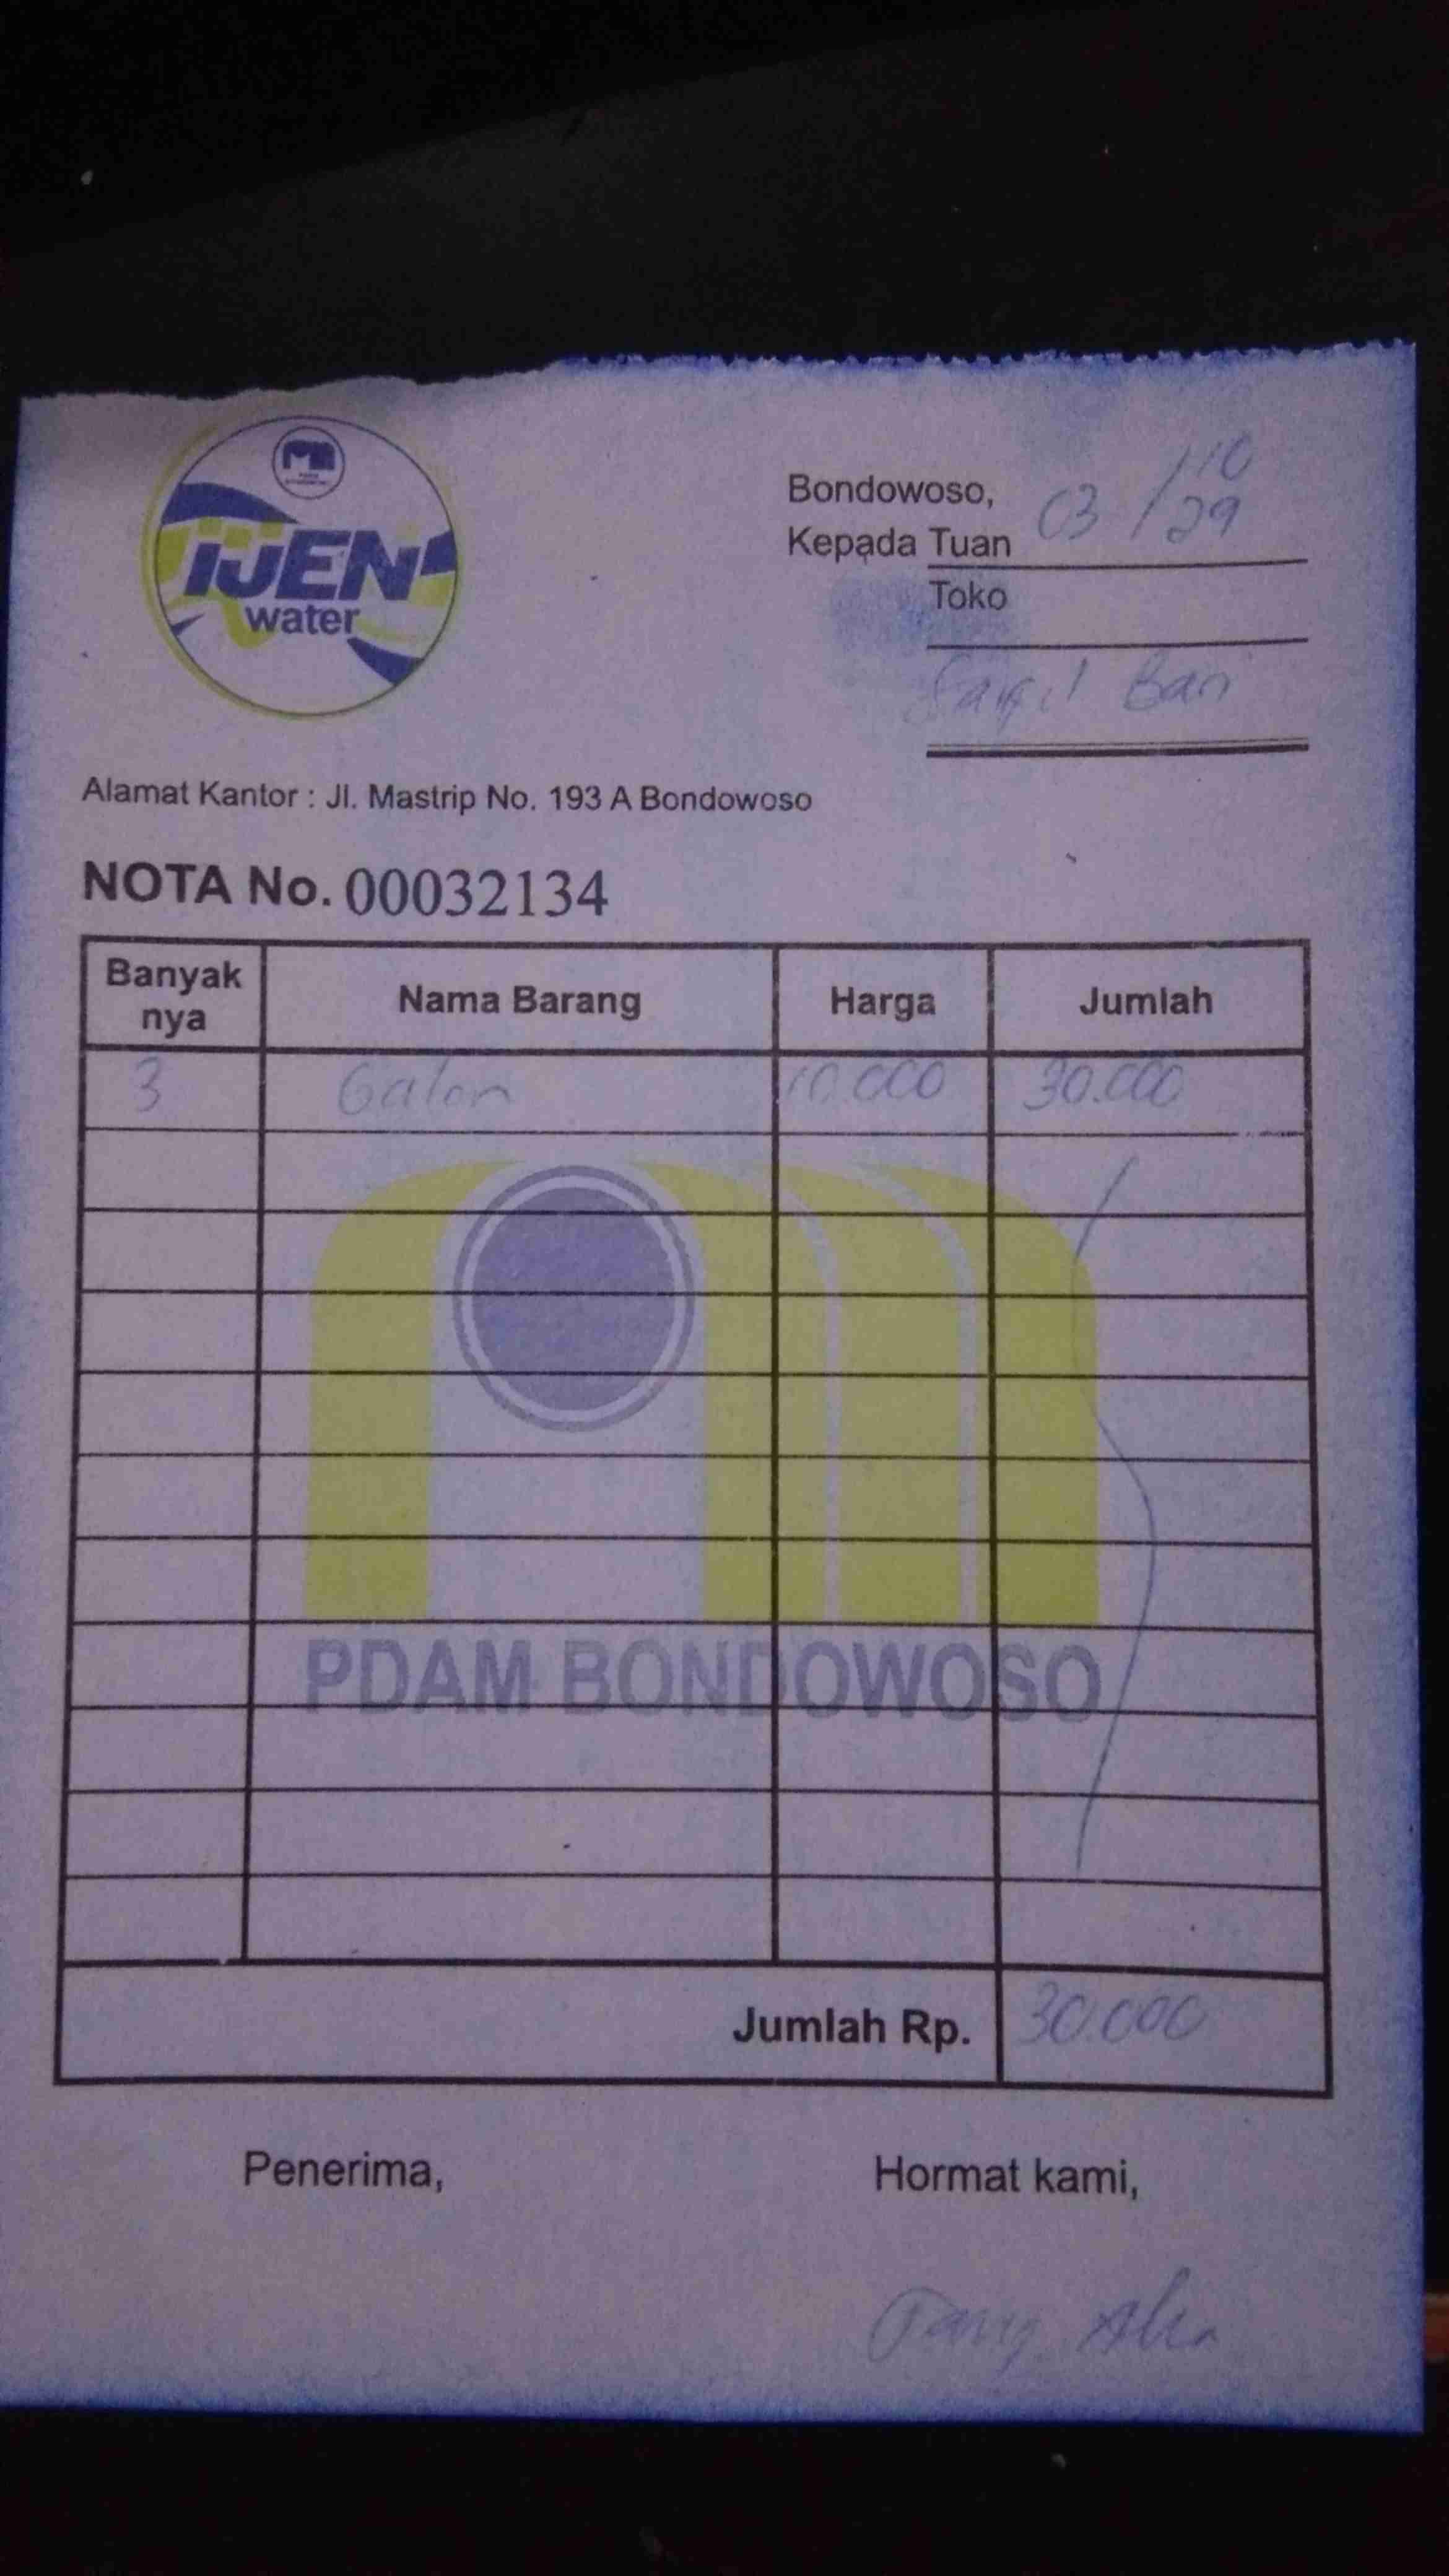 iJEN
water
Bondowoso, 03 / 10
Kepada Tuan
Toko
Ban
Alamat Kantor : Jl. Mastrip No. 193 A Bondowoso
NOTA No. 00032134
Banyak nya Nama Barang Harga Jumlah
3 Galon 10.000 30.000
PDAM BONDOWOSO
Jumlah Rp. 30.000
Penerima, Hormat kami,